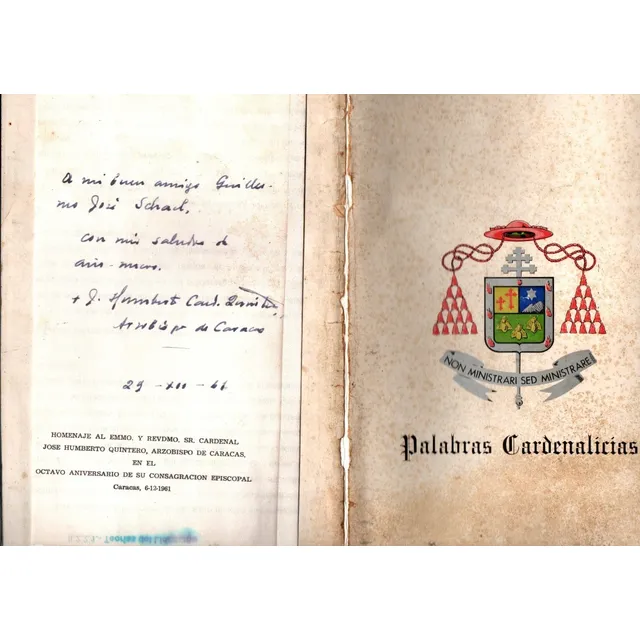 A mi buen amigo Guiller-
mo José Schael,
con mis saludos de
año nuevo.
+ J. Humberto Card. Quintero
Arzobispo de Caracas
29 - XII - 61
HOMENAJE AL EMMO. Y REVDMO. SR. CARDENAL
JOSE HUMBERTO QUINTERO, ARZOBISPO DE CARACAS,
EN EL
OCTAVO ANIVERSARIO DE SU CONSAGRACION EPISCOPAL
Caracas, 6-12-1961
NON MINISTRARI SED MINISTRARE
Palabras Cardenalicias